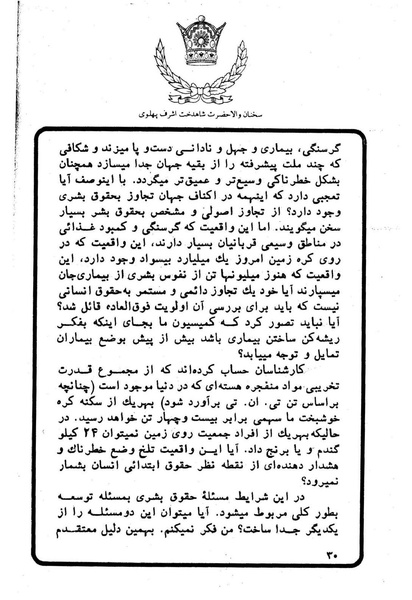 سخنان والاحضرت شاهدخت اشرف پهلوی
گرسنگی، بیماری و جهل و نادانی دست‌و پا میزند و شکافی
که چند ملت پیشرفته را از بقیه جهان جدا میسازد همچنان
بشکل خطرناکی وسیع‌تر و عمیق‌تر میگردد. با اینوصف آیا
تعجبی دارد که اینهمه در اکناف جهان تجاوز بحقوق بشری
وجود دارد؟ از تجاوز اصولی و مشخص بحقوق بشر بسیار
سخن میگویند. اما این واقعیت که گرسنگی و کمبود غذائی
در مناطق وسیعی قربانیان بسیار دارند، این واقعیت که در
روی کره زمین امروز یك میلیارد بیسواد وجود دارد، این
واقعیت که هنوز میلیونها تن از نفوس بشری از بیماری‌جان
میسپارند آیا خود یك تجاوز دائمی و مستمر به‌حقوق انسانی
نیست که باید برای بررسی آن اولویت فوق‌العاده قائل شد؟
آیا نباید تصور کرد که کمیسیون ما بجای اینکه بفکر
ریشه‌کن ساختن بیماری باشد بیش از پیش بوضع بیماران
تمایل و توجه مییابد؟
کارشناسان حساب کرده‌اند که از مجموع قدرت
تخریبی مواد منفجره هسته‌ای که در دنیا موجود است (چنانچه
براساس تن تی. ان. تی برآورد شود) بهریك از سکنه کره
خوشبخت ما سهمی برابر بیست وچهار تن خواهد رسید. در
حالیکه‌بهریك از افراد جمعیت روی زمین نمیتوان ۲۴ کیلو
گندم و یا برنج داد. آیا این واقعیت تلخ وضع خطرناك و
هشدار دهنده‌ای از نقطه نظر حقوق ابتدائی انسان بشمار
نمیرود؟
در این شرایط مسئلهٔ حقوق بشری بمسئله توسعه
بطور کلی مربوط میشود. آیا میتوان این دومسئله را از
یکدیگر جدا ساخت؟ من فکر نمیکنم. بهمین دلیل معتقدم
۳۰